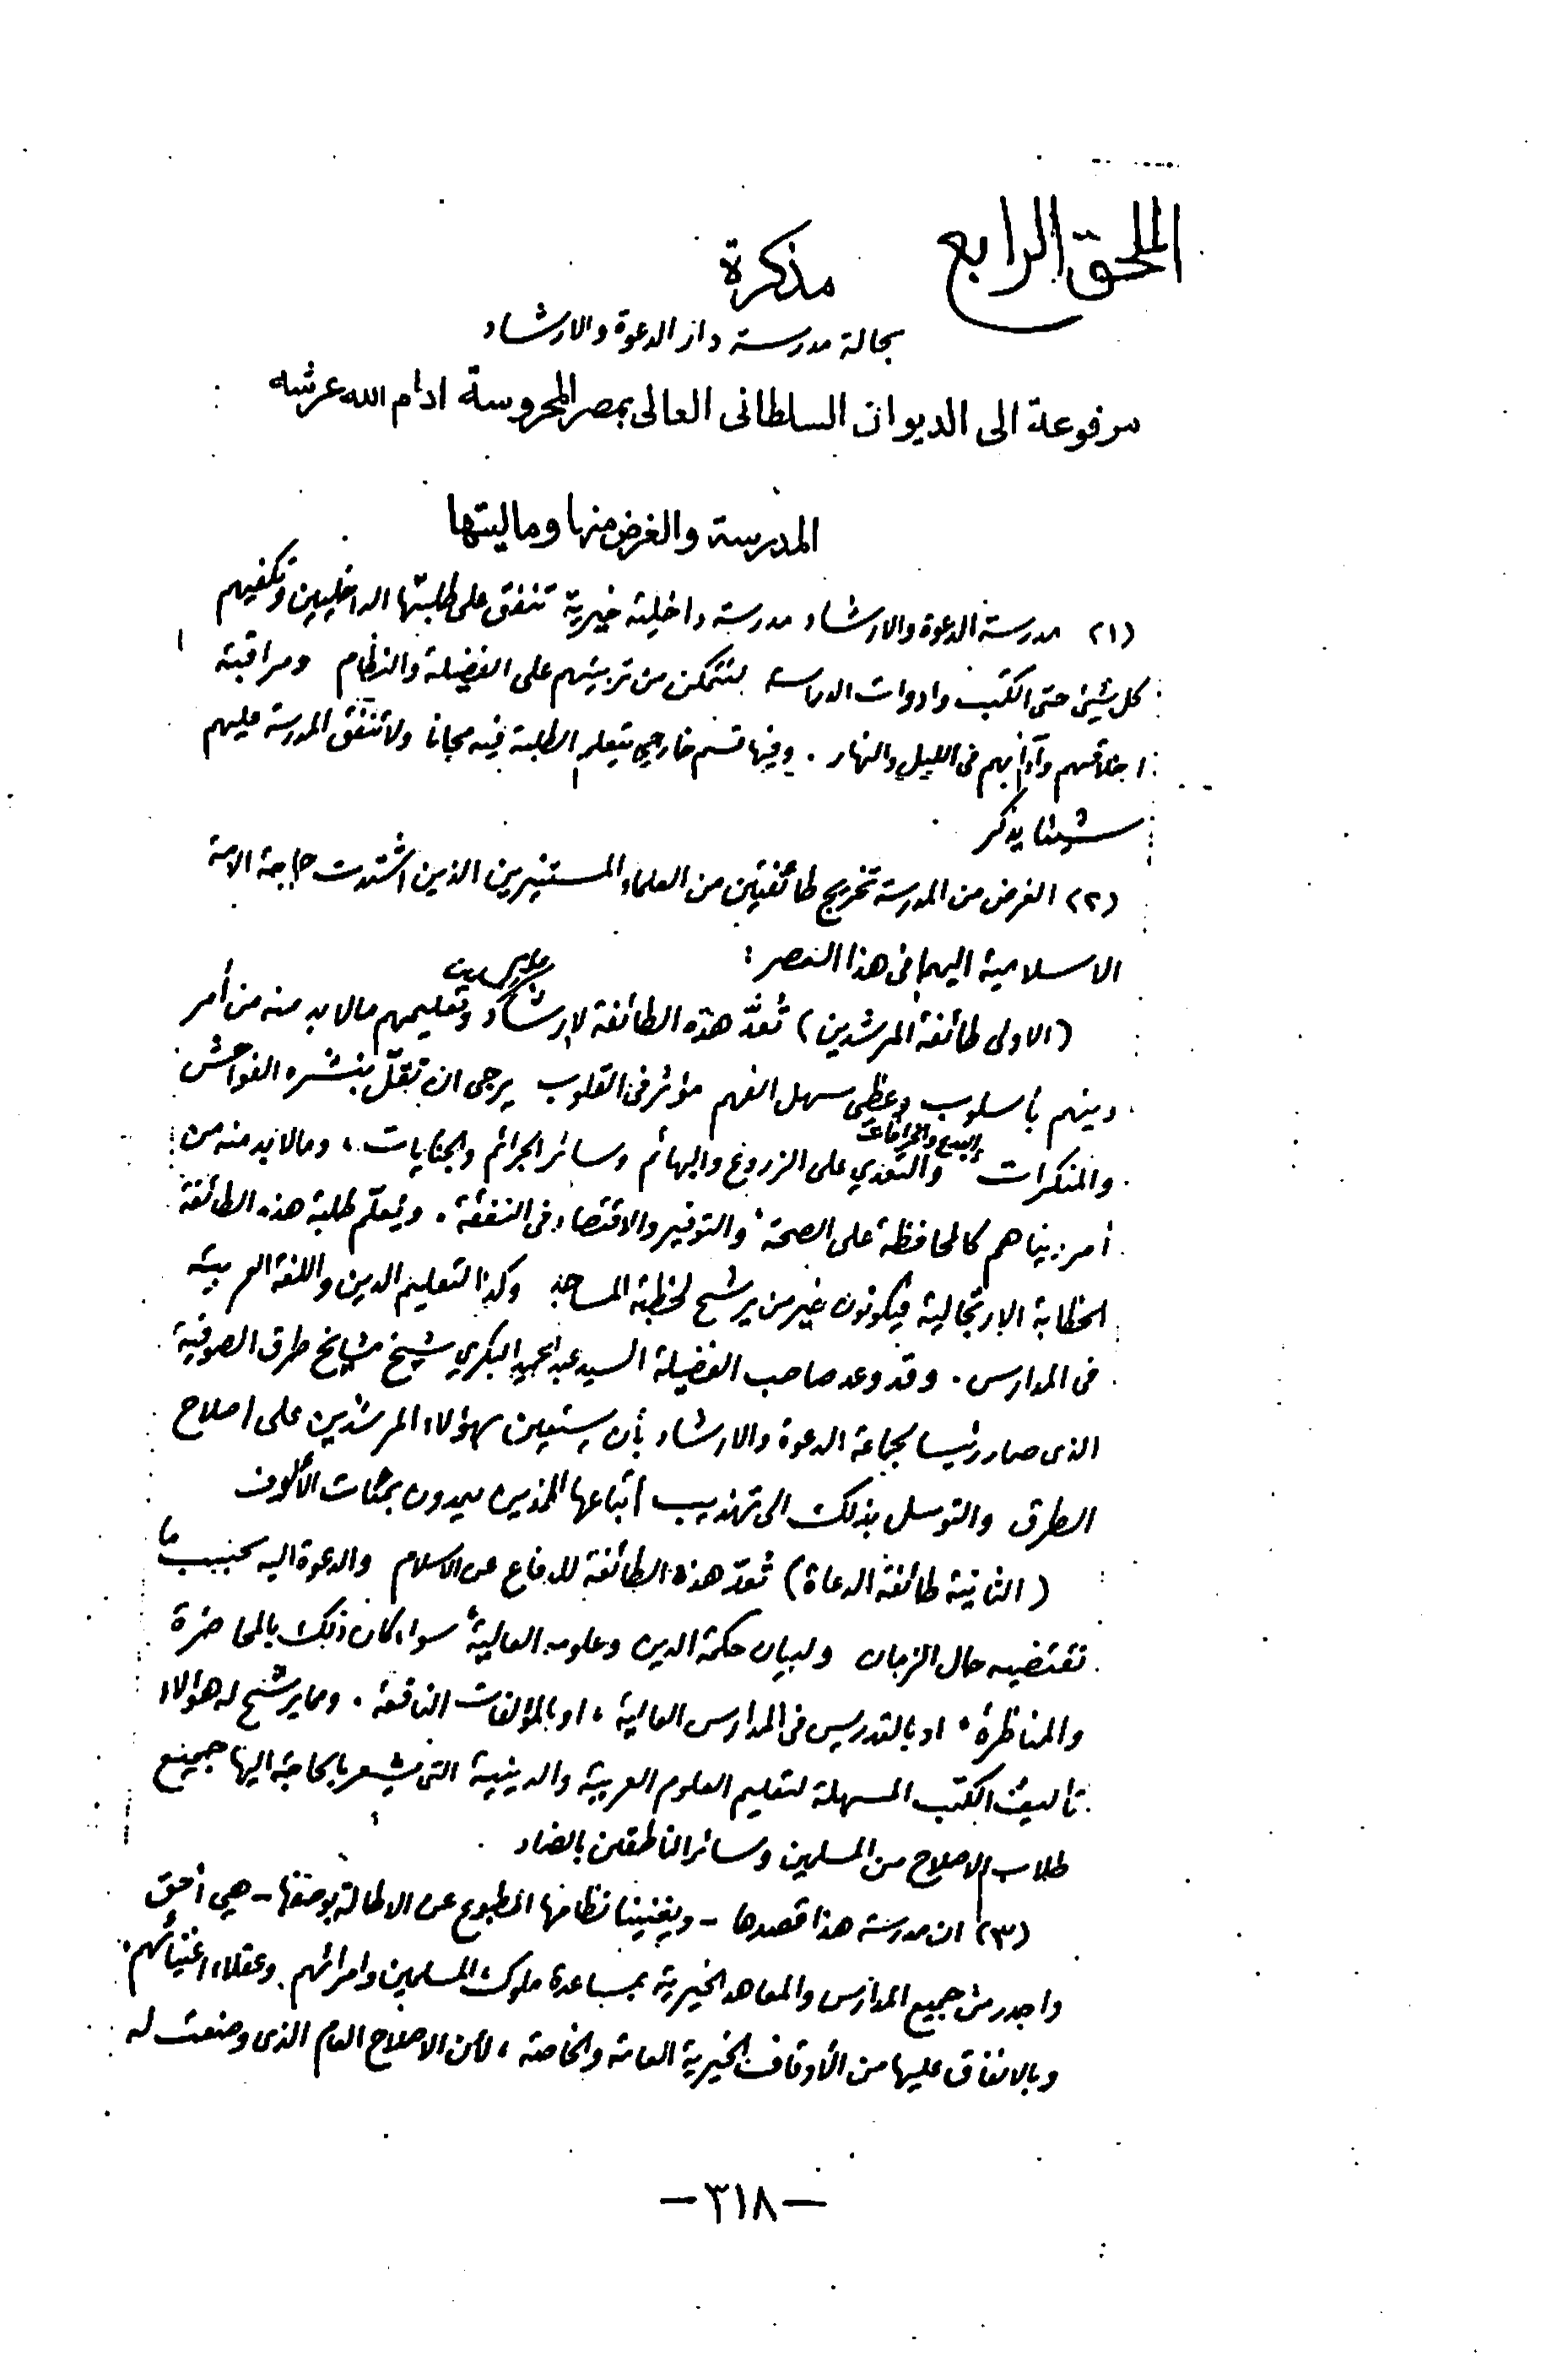 الملحق الرابع
مذكرة
بحالة مدرسة دار الدعوة والارشاد
مرفوعة الى الديوان السلطانى العالى بمصر المحروسة ادام الله عرشه
المدرسة والغرض منها وماليتها
(١) مدرسة الدعوة والارشاد مدرسة داخلية خيرية تنفق على طلبتها الداخليين وتكفيهم
كل شيئ حتى الكتب وادوات الدراسة لتتمكن من تربيتهم على الفضيلة والنظام ومراقبة
اخلاقهم وآدابهم فى الليل والنهار . وفيها قسم خارجي يتعلم الطلبة فيه مجانا ولا تنفق المدرسة عليهم
شيئا يذكر
(٢) الغرض من المدرسة تخريج طائفتين من العلماء المستنيرين الذين اشتدت حاجة الامة
الاسلامية اليهما فى هذا العصر :
(الاولى طائفة المرشدين) تُعدّ هذه الطائفة لارشاد وتعليمهم مالا بد منه من أمر
دينهم بأسلوب وعظي سهل الفهم مؤثر فى القلوب يرجى ان تقلّ بنشره الفواحش
والمنكرات البدع والخرافات والتعدي على الزروع والبهائم وسائر الجرائم والجنايات ، ومالا بد منه من
أمر دنياهم كالمحافظة على الصحة والتوفير والاقتصاد فى النفقة . ويُعلّم طلبة هذه الطائفة
الخطابة الارتجالية فيكونون خير من يرشح لخطبة المساجد وكذا لتعليم الدين واللغة العربية
فى المدارس . وقد وعد صاحب الفضيلة السيد عبد الحميد البكري شيخ مشايخ طرق الصوفية
الذى صار رئيسا لجماعة الدعوة والارشاد بأن يستعين بهؤلاء المرشدين على اصلاح
الطرق والتوسل بذلك الى تهذيب أتباعها الذين يعدون بمئات الألوف
(الثانية طائفة الدعاة) تُعدّ هذه الطائفة للدفاع عن الاسلام والدعوة اليه بحسب ما
تقتضيه حال الزمان ولبيان حكمة الدين وعلومه العالية سواء كان ذلك بالمحاضرة
والمناظرة ، او بالتدريس فى المدارس العالية ، او بالمؤلفات النافعة . ومما يرشح له هؤلاء
تأليف الكتب المسهلة لتعليم العلوم العربية والدينية التى يشعر بالحاجة اليها جميع
طلاب الاصلاح من المسلمين وسائر الناطقين بالضاد
(٣) ان مدرسة هذا قصدها - ويغنينا نظامها المطبوع عن الاطالة بوصفها - هي أحق
واجدر من جميع المدارس والمعاهد الخيرية بمساعدة ملوك المسلمين وامرائهم وعقلاء اغنيائهم
وبالانفاق عليها من الأوقاف الخيرية العامة والخاصة ، لأن الاصلاح العام الذى وضعت له
— ٣١٨ —